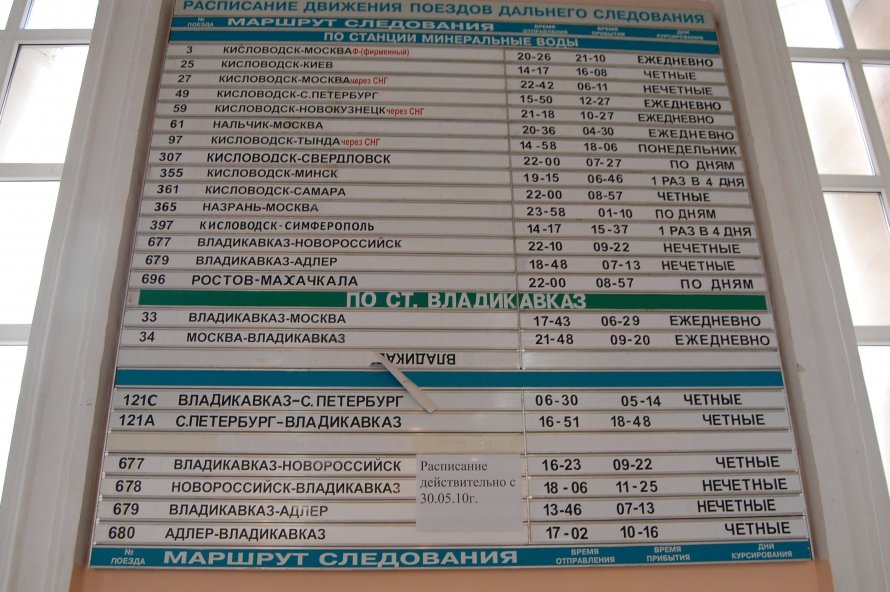 РАСПИСАНИЕ ДВИЖЕНИЯ ПОЕЗДОВ ДАЛЬНЕГО СЛЕДОВАНИЯ
№ ПОЕЗДА МАРШРУТ СЛЕДОВАНИЯ ВРЕМЯ ОТПРАВЛЕНИЯ ВРЕМЯ ПРИБЫТИЯ ДНИ КУРСИРОВАНИЯ
ПО СТАНЦИИ МИНЕРАЛЬНЫЕ ВОДЫ
3 КИСЛОВОДСК-МОСКВА Ф-(фирменный) 20-26 21-10 ЕЖЕДНЕВНО
25 КИСЛОВОДСК-КИЕВ 14-17 16-08 ЧЕТНЫЕ
27 КИСЛОВОДСК-МОСКВА через СНГ 22-42 06-11 НЕЧЕТНЫЕ
49 КИСЛОВОДСК-С.ПЕТЕРБУРГ 15-50 12-27 ЕЖЕДНЕВНО
59 КИСЛОВОДСК-НОВОКУЗНЕЦК через СНГ 21-18 10-27 ЕЖЕДНЕВНО
61 НАЛЬЧИК-МОСКВА 20-36 04-30 ЕЖЕДНЕВНО
97 КИСЛОВОДСК-ТЫНДА через СНГ 14-58 18-06 ПОНЕДЕЛЬНИК
307 КИСЛОВОДСК-СВЕРДЛОВСК 22-00 07-27 ПО ДНЯМ
355 КИСЛОВОДСК-МИНСК 19-15 06-46 1 РАЗ В 4 ДНЯ
361 КИСЛОВОДСК-САМАРА 22-00 08-57 ЧЕТНЫЕ
365 НАЗРАНЬ-МОСКВА 23-58 01-10 ПО ДНЯМ
397 КИСЛОВОДСК-СИМФЕРОПОЛЬ 14-17 15-37 1 РАЗ В 4 ДНЯ
677 ВЛАДИКАВКАЗ-НОВОРОССИЙСК 22-10 09-22 НЕЧЕТНЫЕ
679 ВЛАДИКАВКАЗ-АДЛЕР 18-48 07-13 НЕЧЕТНЫЕ
696 РОСТОВ-МАХАЧКАЛА 22-00 08-57 ПО ДНЯМ
ПО СТ. ВЛАДИКАВКАЗ
33 ВЛАДИКАВКАЗ-МОСКВА 17-43 06-29 ЕЖЕДНЕВНО
34 МОСКВА-ВЛАДИКАВКАЗ 21-48 09-20 ЕЖЕДНЕВНО
ВЛАДИКАВ
121С ВЛАДИКАВКАЗ-С.ПЕТЕРБУРГ 06-30 05-14 ЧЕТНЫЕ
121А С.ПЕТЕРБУРГ-ВЛАДИКАВКАЗ 16-51 18-48 ЧЕТНЫЕ
677 ВЛАДИКАВКАЗ-НОВОРОССИЙСК 16-23 09-22 ЧЕТНЫЕ
678 НОВОРОССИЙСК-ВЛАДИКАВКАЗ 18-06 11-25 НЕЧЕТНЫЕ
679 ВЛАДИКАВКАЗ-АДЛЕР 13-46 07-13 НЕЧЕТНЫЕ
680 АДЛЕР-ВЛАДИКАВКАЗ 17-02 10-16 ЧЕТНЫЕ
Расписание
действительно с
30.05.10г.
№ ПОЕЗДА МАРШРУТ СЛЕДОВАНИЯ ВРЕМЯ ОТПРАВЛЕНИЯ ВРЕМЯ ПРИБЫТИЯ ДНИ КУРСИРОВАНИЯ